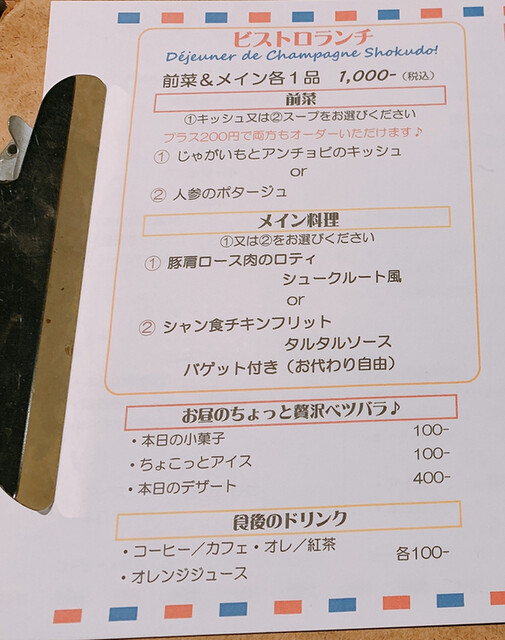 ビストロランチ
Déjeuner de Champagne Shokudo!
前菜＆メイン各１品 1,000-（税込）
前菜
①キッシュ又は②スープをお選びください
プラス200円で両方もオーダーいただけます♪
① じゃがいもとアンチョビのキッシュ
or
② 人参のポタージュ
メイン料理
①又は②をお選びください
① 豚肩ロース肉のロティ
シュークルート風
or
② シャン食チキンフリット
タルタルソース
バゲット付き（お代わり自由）
お昼のちょっと贅沢ベツバラ♪
・本日の小菓子 100-
・ちょこっとアイス 100-
・本日のデザート 400-
食後のドリンク
・コーヒー／カフェ・オレ／紅茶 各100-
・オレンジジュース